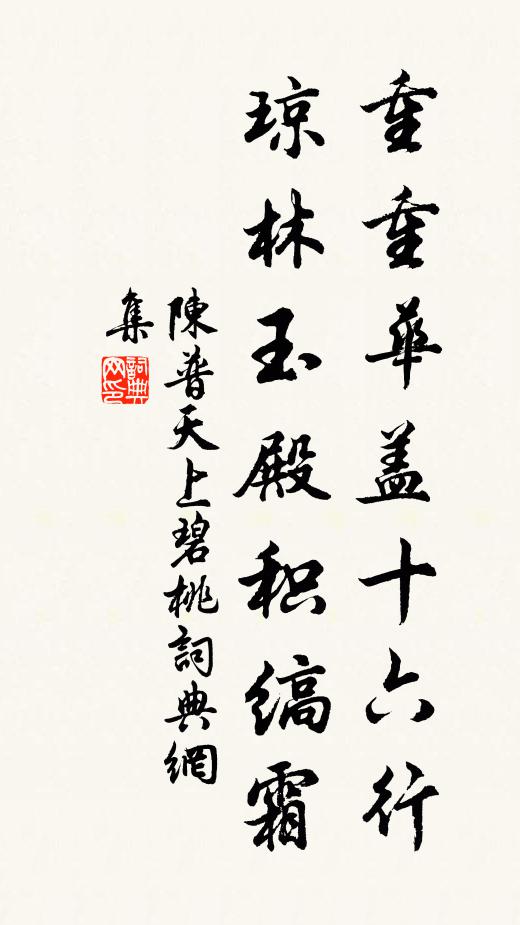 重重華盖十六行
琼林玉殿积缟霜
陳普天上碧桃詞典網
集
詞典
网印